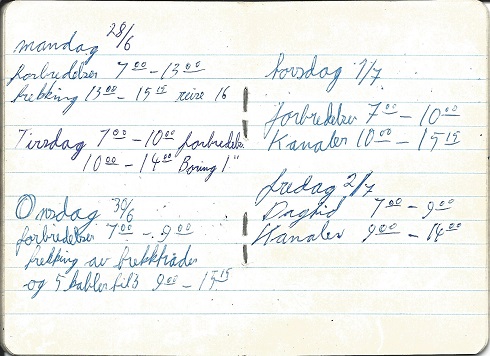 mandag 28/6
forbredelser 7 00 - 13 00
trekking 13 00 - 15 15 reise 16
Tirsdag 7 00 - 10 00 forbredels.
10 00 - 14 00 Boring 1"
Onsdag 30/6
forbredelser 7 00 - 9 00
trekking av trekktråder
og 5 kabler til 3 9 00 - 15 15
torsdag 1/7
forbredelser 7 00 - 10 00
Kanaler 10 00 - 15 15
fredag 2/7
Dagtid 7 00 - 9 00
Kanaler 9 00 - 14 00